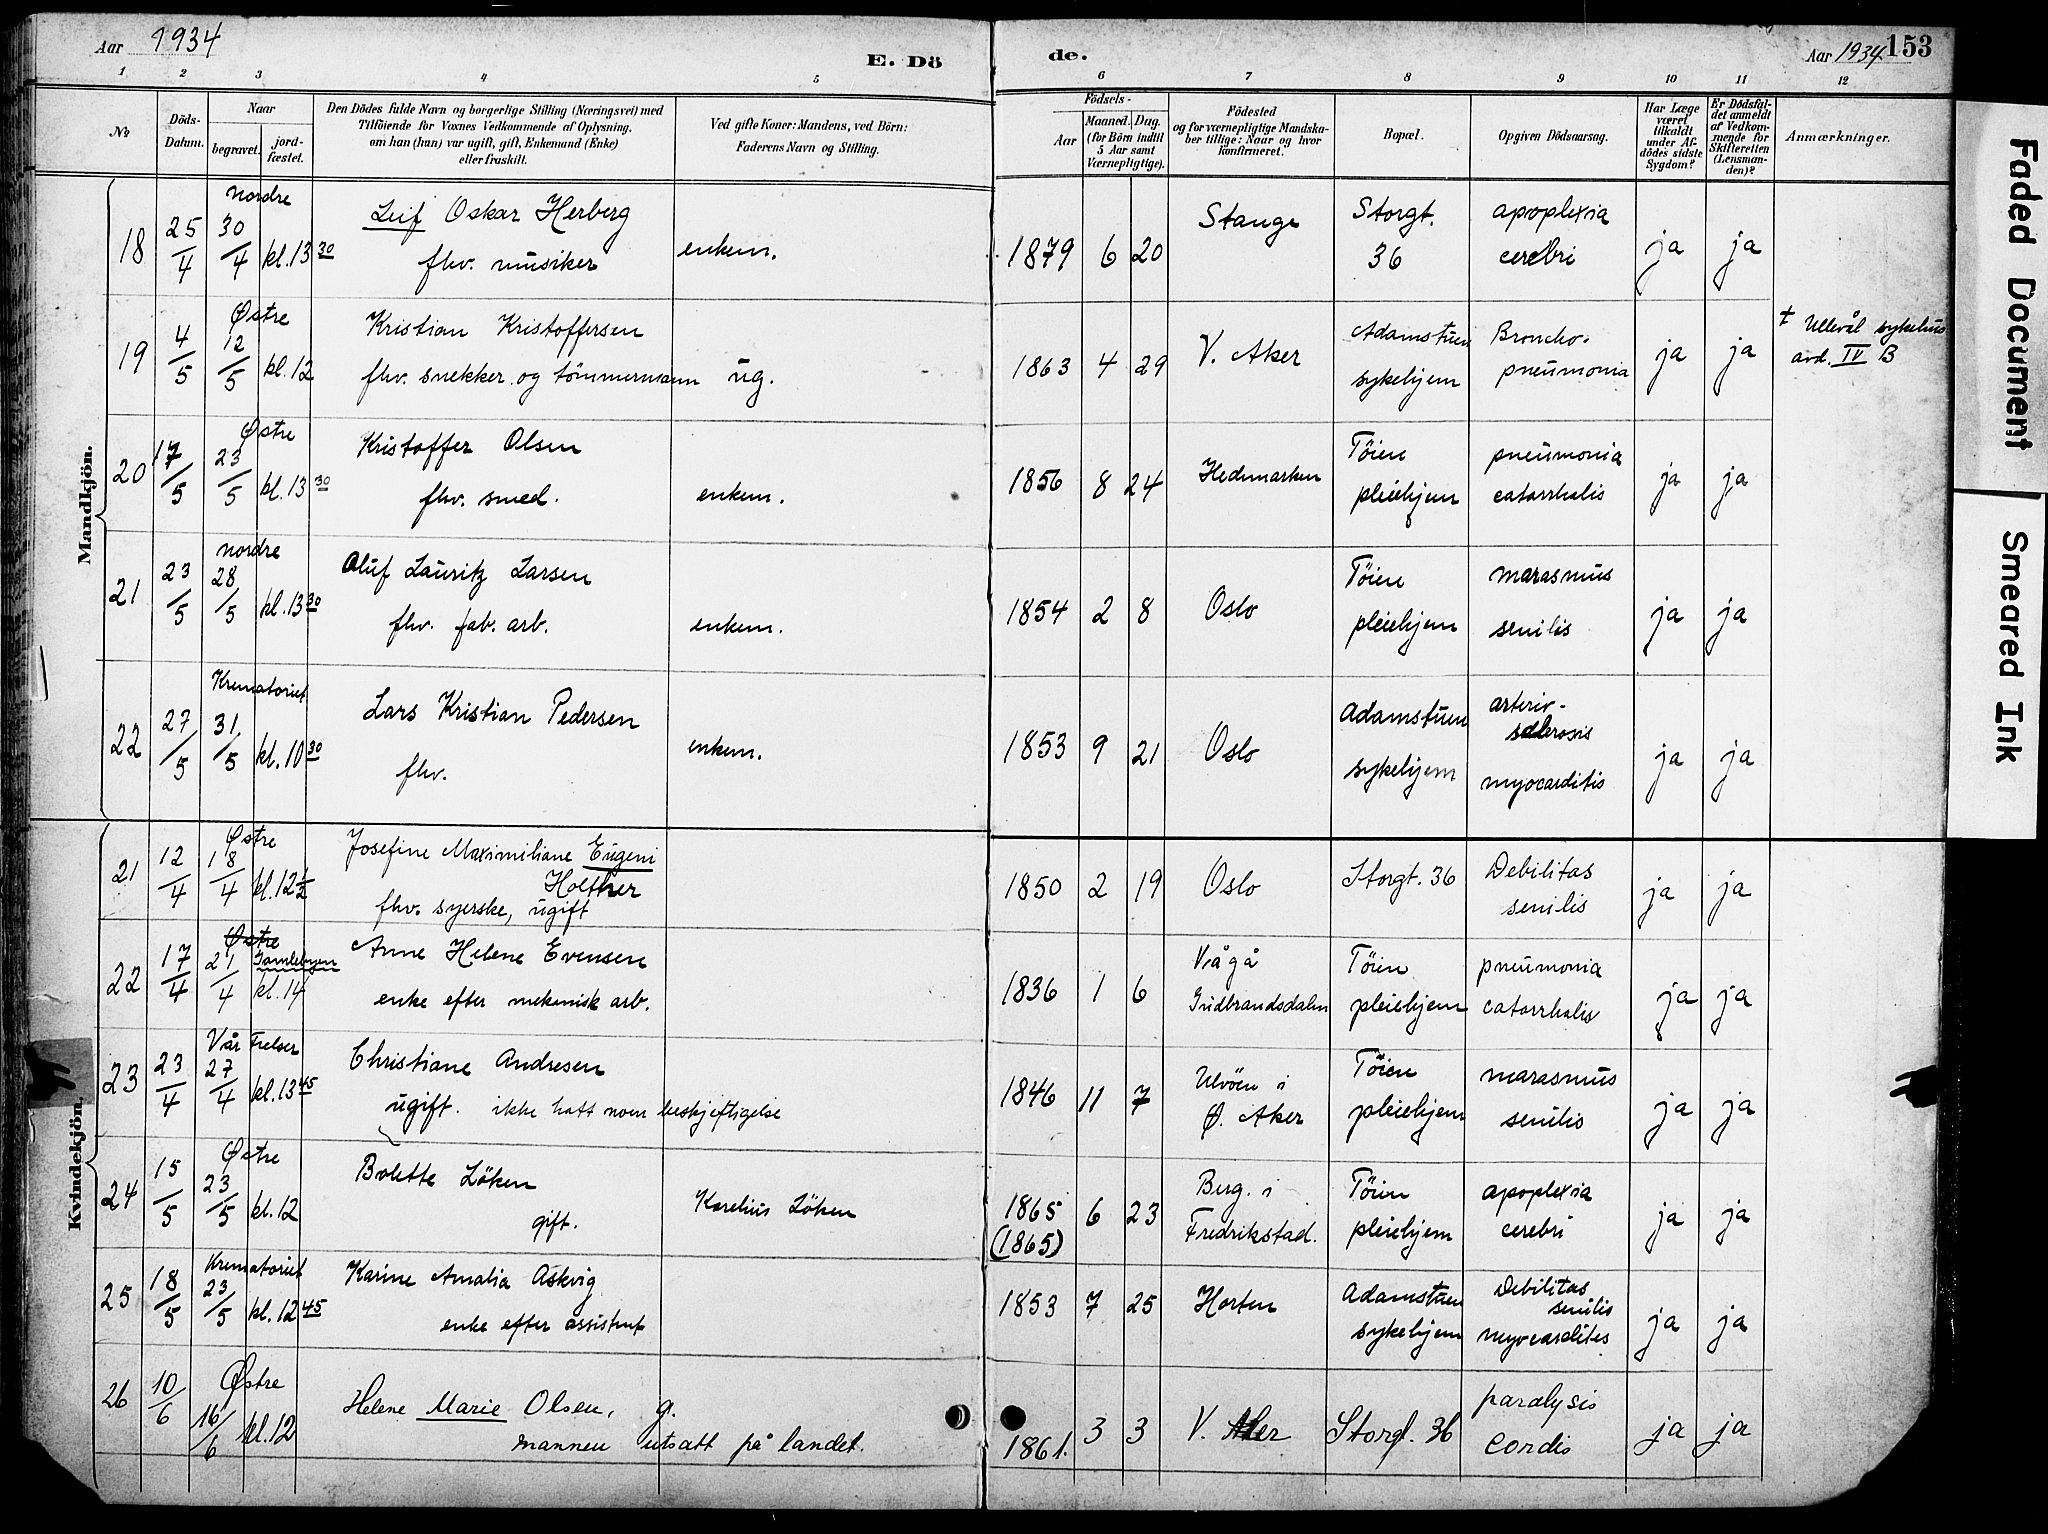 Aar 1934
E. Dö
de.
Aar 1934 153
1 2 3 4 5 6 7 8 9 10 11 12
No
Döds-Datum.
Naar
begravet.
jord-fæstet.
Den Dödes fulde Navn og borgerlige Stilling (Næringsvei) med
Tilföiende for Voxnes Vedkommende af Oplysning,
om han (hun) var ugift, gift, Enkemand (Enke)
eller fraskilt.
Ved gifte Koner: Mandens, ved Börn:
Faderens Navn og Stilling.
Födsels-
Aar
Maaned. Dag.
(for Börn indtil
5 Aar samt
Værnepligtige).
Födested
og for værnepligtige Mandska-
ber tillige: Naar og hvor
konfirmeret.
Bopæl.
Opgiven Dödsaarsag.
Har Læge
været
tilkaldt
under Af-
dödes sidste
Sygdom?
Er Dödsfal-
det anmeldt
af Vedkom-
mende for
Skifteretten
(Lensman-
den)?
Anmærkninger.
Mandkjön.
18 25/4 nordre 30/4 kl. 13 30 Leif Oskar Herberg
fhv. musiker enkem. 1879 6 20 Stange Storgt. 36 apoplexia cerebri ja ja
19 4/5 Østre 12/5 kl. 12 Kristian Kristoffersen
fhv. snekker og tömmermann ug. 1863 4 29 V. Aker Adamstuen sykehjem Broncho-pneumonia ja ja † Ullevål sykehus avd. IV B
20 17/5 Østre 23/5 kl. 13 30 Kristoffer Olsen
fhv. smed. enkem. 1856 8 24 Hedmarken Töien pleiehjem pneumonia catarrhalis ja ja
21 23/5 nordre 28/5 kl. 13 30 Oluf Lauritz Larsen
fhv. fab. arb. enkem. 1854 2 8 Oslo Töien pleiehjem marasmus senilis ja ja
22 27/5 Krematoriet 31/5 kl. 10 30 Lars Kristian Pedersen
fhv. enkem. 1853 9 21 Oslo Adamstuen sykehjem arterio-sclerosis myocarditis ja ja
Kvindekjön.
21 12/4 Østre 18/4 kl. 12 1/2 Josefine Maximiliane Eugeni Holther
fhv. syerske, ugift 1850 2 19 Oslo Storgt. 36 Debilitas senilis ja ja
22 17/4 Østre Gamlebyen 21/4 kl. 14 Anne Helene Evensen
enke efter mekanisk arb. 1836 1 6 Vågå Gudbrandsdalen Töien pleiehjem pneumonia catarrhalis ja ja
23 23/4 Vår Frelser 27/4 kl. 13 45 Christiane Andresen
ugift. ikke hatt noen beskjeftigelse 1846 11 7 Ulvöen i Ø. Aker Töien pleiehjem marasmus senilis ja ja
24 15/5 Østre 23/5 kl. 12 Bolette Löken
gift. Karelius Löken 1865 (1865) 6 23 Berg. i Fredrikstad. Töien pleiehjem apoplexia cerebri ja ja
25 18/5 Krematoriet 23/5 kl. 12 45 Karine Amalia Askvig
enke efter assistent 1853 7 25 Horten Adamstuen sykehjem Debilitas senilis myocardites ja ja
26 10/6 Østre 16/6 kl. 12 Helene Marie Olsen, g.
mannen utsatt på landet. 1861. 3 3 V. Aker Storgt. 36 paralysis cordis ja ja
Faded Document
Smeared Ink